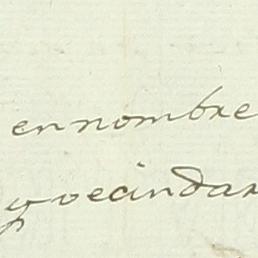 en nombre
y vecindar